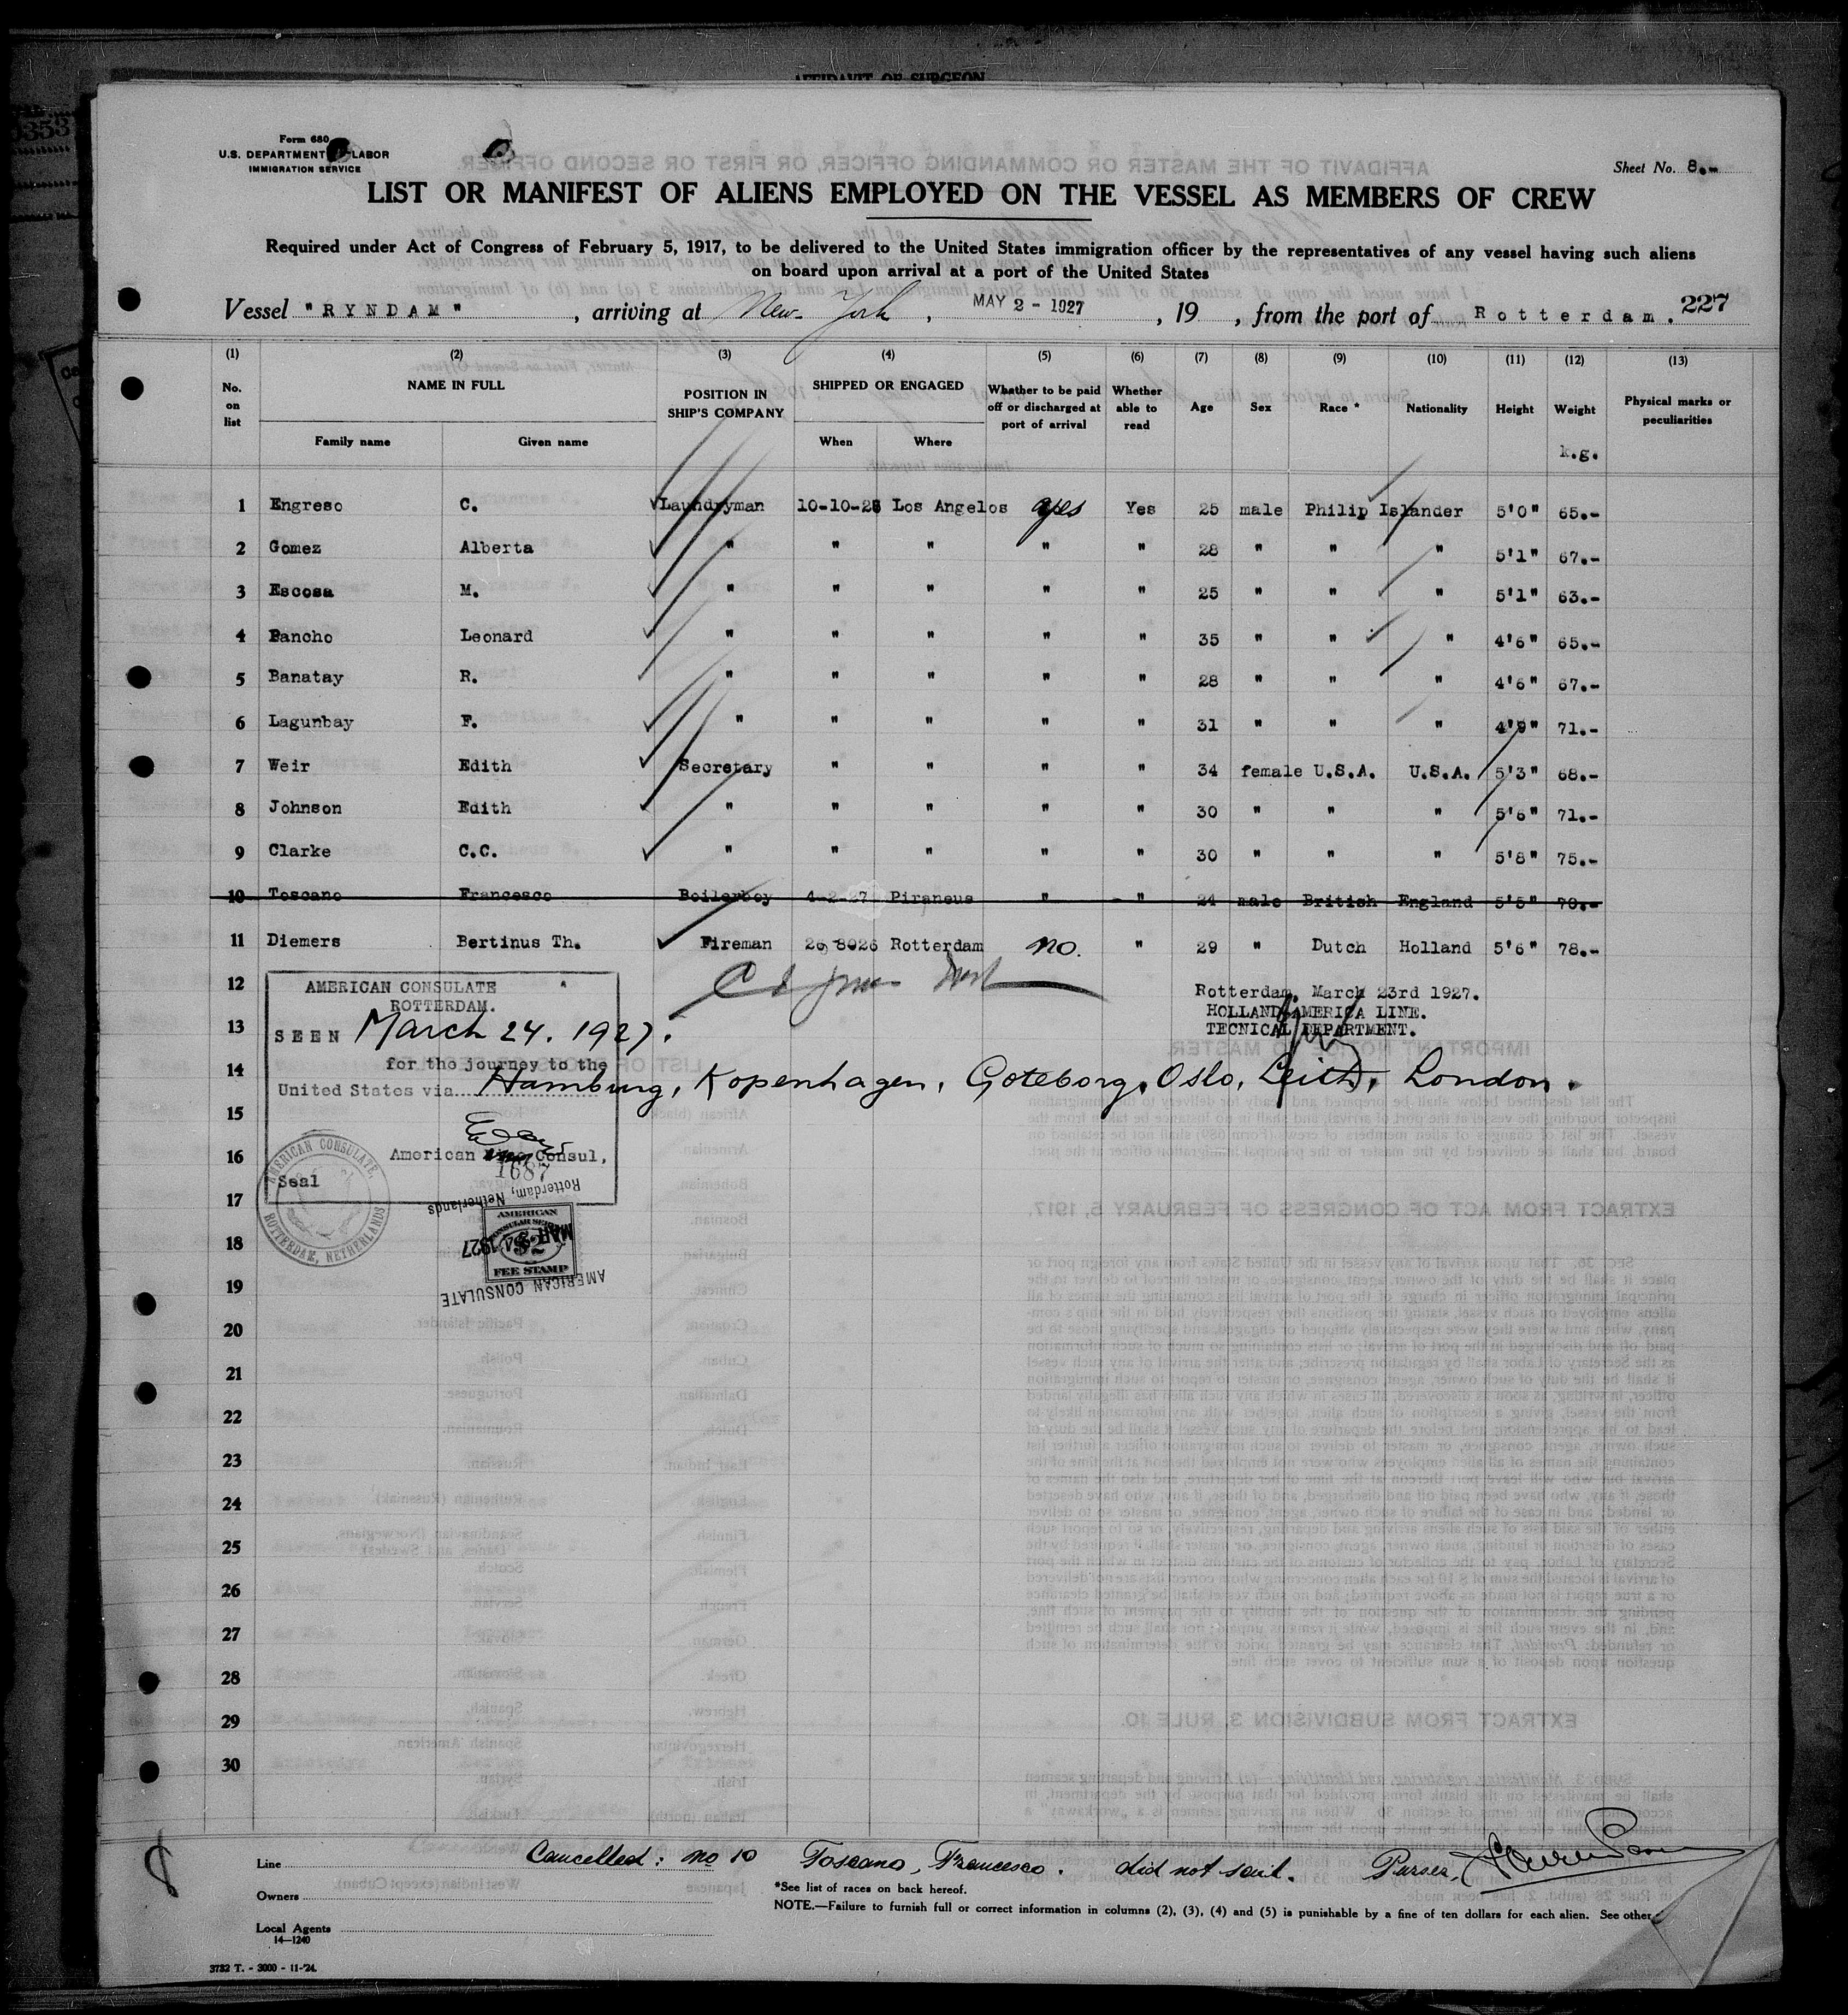 AFFIDAVIT OF SURGEON
353
Form 680
U.S. DEPARTMENT LABOR
IMMIGRATION SERVICE
Sheet No. 8.-
LIST OR MANIFEST OF ALIENS EMPLOYED ON THE VESSEL AS MEMBERS OF CREW
Required under Act of Congress of February 5, 1917, to be delivered to the United States immigration officer by the representatives of any vessel having such aliens
on board upon arrival at a port of the United States
Vessel "RYNDAM" , arriving at New York , MAY 2 - 1927 , 19 , from the port of Rotterdam. 227
(1) (2) (3) (4) (5) (6) (7) (8) (9) (10) (11) (12) (13)
No. on list NAME IN FULL Family name Given name POSITION IN SHIP'S COMPANY SHIPPED OR ENGAGED When Where Whether to be paid off or discharged at port of arrival Whether able to read Age Sex Race * Nationality Height Weight k.g. Physical marks or peculiarities
1 Engreso C. Laundryman 10-10-26 Los Angelos yes Yes 25 male Philip Islander 5'0" 65.-
2 Gomez Alberta " " " " " 28 " " " 5'1" 67.-
3 Escosa M. " " " " " 25 " " " 5'1" 63.-
4 Pancho Leonard " " " " " 35 " " " 4'6" 65.-
5 Banatay R. " " " " " 28 " " " 4'6" 67.-
6 Lagunbay F. " " " " " 31 " " " 4'9" 71.-
7 Weir Edith Secretary " " " " 34 female U.S.A. U.S.A. 5'3" 68.-
8 Johnson Edith " " " " " 30 " " " 5'6" 71.-
9 Clarke C.C. " " " " " 30 " " " 5'8" 75.-
10 Toscano Francesco Boilerboy 4-2-27 Piraneus " " 24 male British England 5'5" 70.-
11 Diemers Bertinus Th. Fireman 26 8026 Rotterdam no. " 29 " Dutch Holland 5'6" 78.-
12
AMERICAN CONSULATE
ROTTERDAM.
Rotterdam, March 23rd 1927.
HOLLAND AMERICA LINE.
TECNICAL DEPARTMENT.
13 SEEN March 24. 1927.
for the journey to the
14 United States via Hamburg, Kopenhagen, Goteborg, Oslo, Leith, London.
15
16 American Consul,
1687
Seal
AMERICAN CONSULATE, ROTTERDAM, NETHERLANDS
17 Rotterdam, Netherlands
AMERICAN
CONSULAR SERVICE
18 $2 MAR 24 1927
FEE STAMP
AMERICAN CONSULATE
19
20
21
22
23
24
25
26
27
28
29
30
8
Cancelled: no 10 Toscano, Francesco. did not sail. Purser,
Line
*See list of races on back hereof.
Owners
NOTE.—Failure to furnish full or correct information in columns (2), (3), (4) and (5) is punishable by a fine of ten dollars for each alien. See other
Local Agents
14—1240
3732 T. - 3000 - 11-'24.